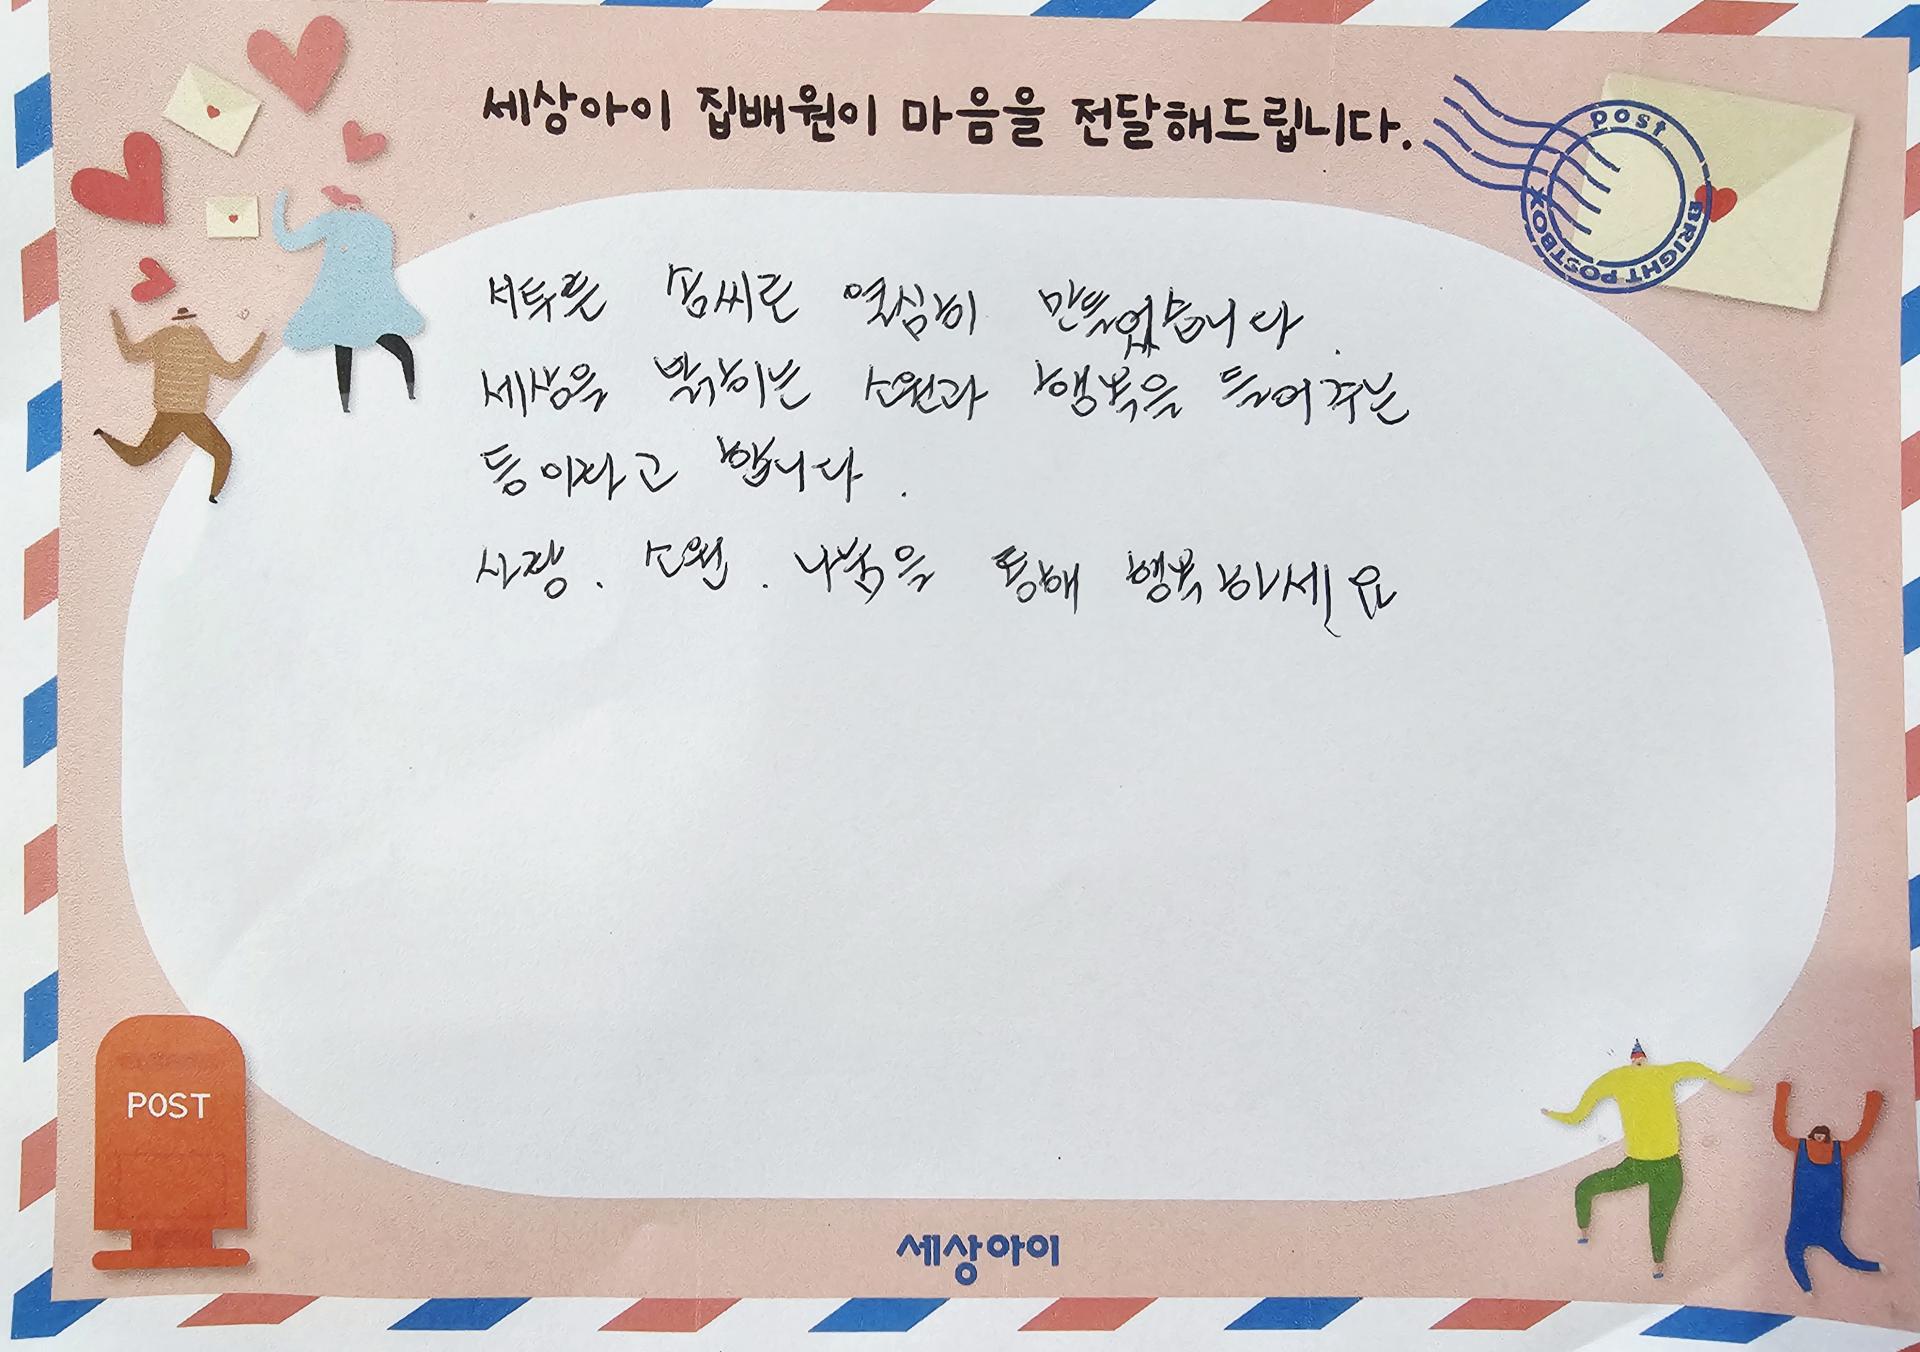 세상아이 집배원이 마음을 전달해드립니다.
post
BRIGHT POSTBOX
서투른 솜씨로 열심히 만들었습니다.
세상을 밝히는 소원과 행복을 들어주는
등이라고 합니다.
사랑. 소원. 나눔을 통해 행복하세요
POST
세상아이